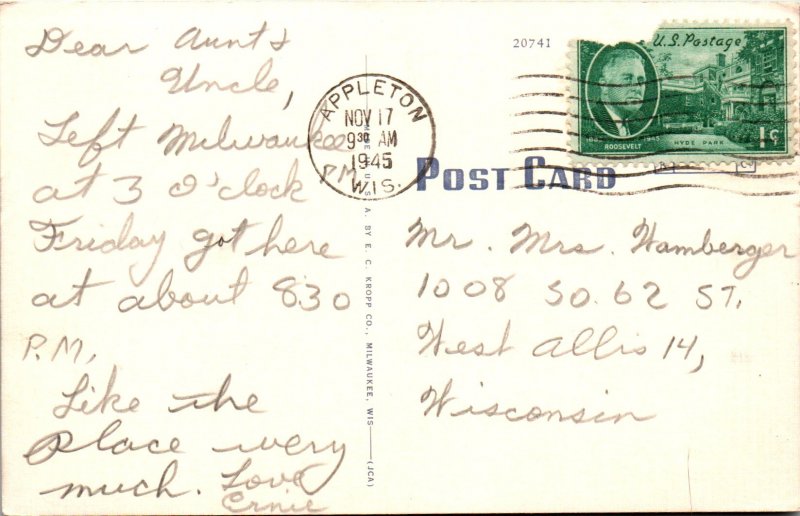 Dear Aunt &
Uncle,
Left Milwaukee
at 3 o'clock P.M.
Friday got here
at about 830
P.M.
Like the
place wery
much. Love
Ernie
MADE IN U. S. A. BY E. C. KROPP CO., MILWAUKEE, WIS. (JCA)
20741
APPLETON
NOV 17
9 30 AM
1945
WIS.
U.S. Postage
ROOSEVELT
HYDE PARK
1¢
POST CARD
Mr. Mrs. Hamberger
1008 SO. 62 ST.
West Allis 14,
Wisconsin